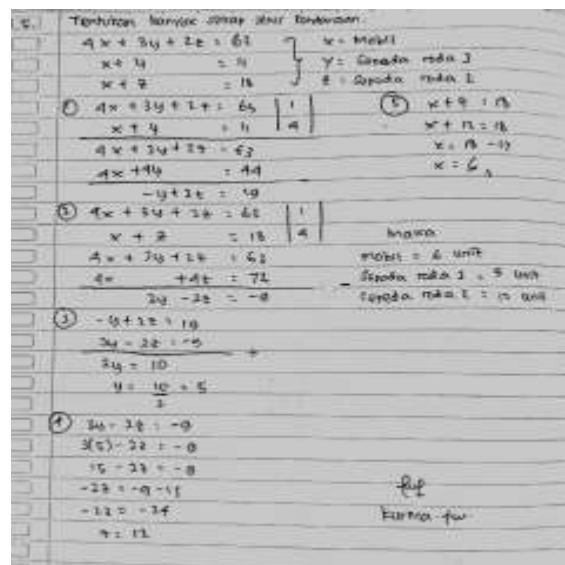 5. Tentukan banyak setiap jenis kendaraan.
4x + 3y + 2z = 63
x + y = 11
x + z = 18
x = Mobil
y = Sepeda roda 3
z = Sepeda roda 2
① 4x + 3y + 2z = 63 | 1
x + y = 11 | 4
4x + 3y + 2z = 63
4x + 4y = 44
-y + 2z = 19
② 4x + 3y + 2z = 63 | 1
x + z = 18 | 4
4x + 3y + 2z = 63
4x + 4z = 72
3y - 2z = -9
③ -y + 2z = 19
3y - 2z = -9 +
2y = 10
y = 10/2 = 5
④ 3y - 2z = -9
3(5) - 2z = -9
15 - 2z = -9
-2z = -9 - 15
-2z = -24
z = 12
⑤ x + z = 18
x + 12 = 18
x = 18 - 12
x = 6
maka
mobil = 6 unit
Sepeda roda 3 = 5 unit
Sepeda roda 2 = 12 unit